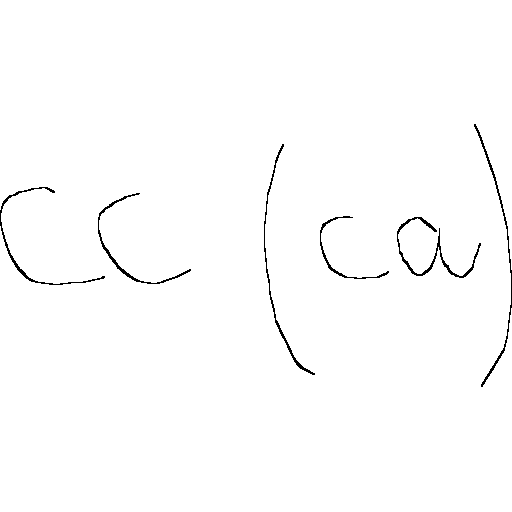 cc (ca)